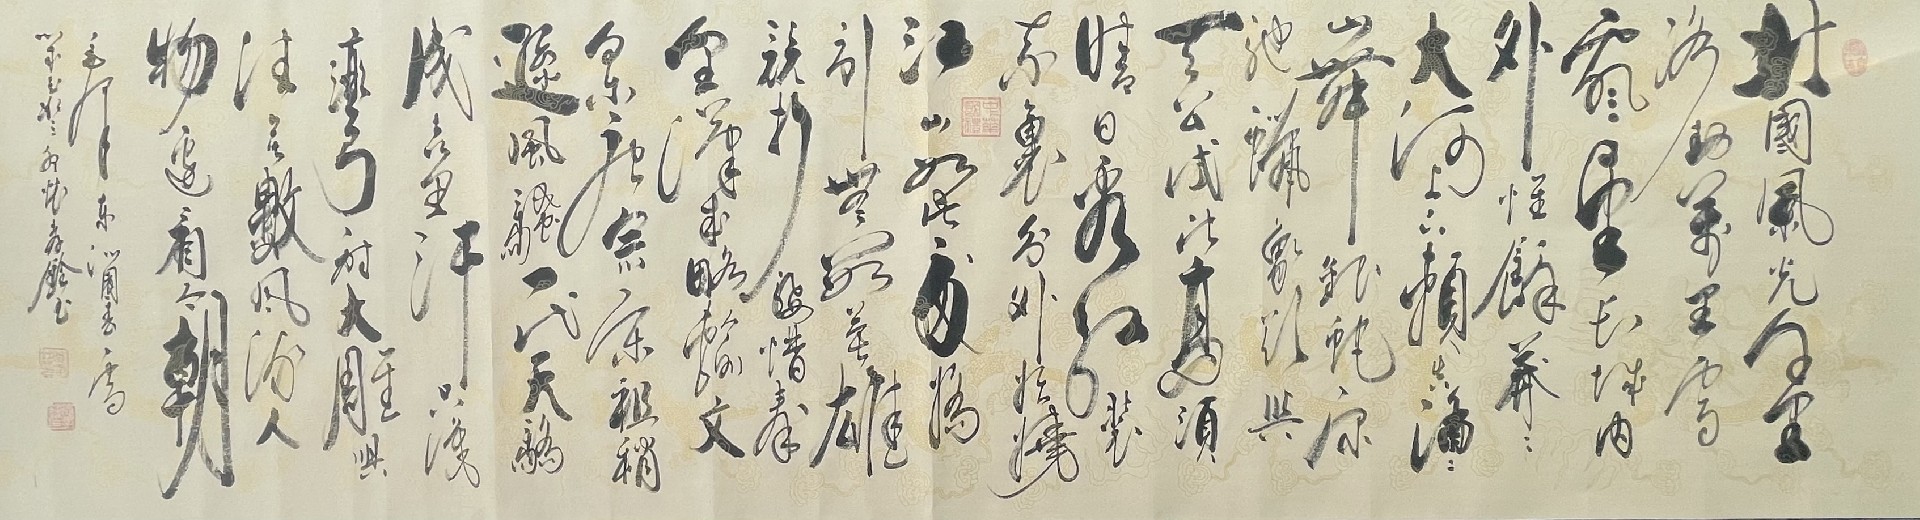 北國風光千里
冰封萬里雪
飄望長城內
外惟餘莽〻
大河上下頓失滔〻
山舞銀蛇原
馳蠟象欲與
天公試比高須
晴日看紅裝
素裹分外妖嬈
江山如此多嬌
引無數英雄
競折腰惜秦
皇漢武略輸文
采唐宗宋祖稍
遜風騷一代天驕
成吉思汗只識
彎弓射大雕俱
往矣數風流人
物還看今朝
毛澤東沁園春雪